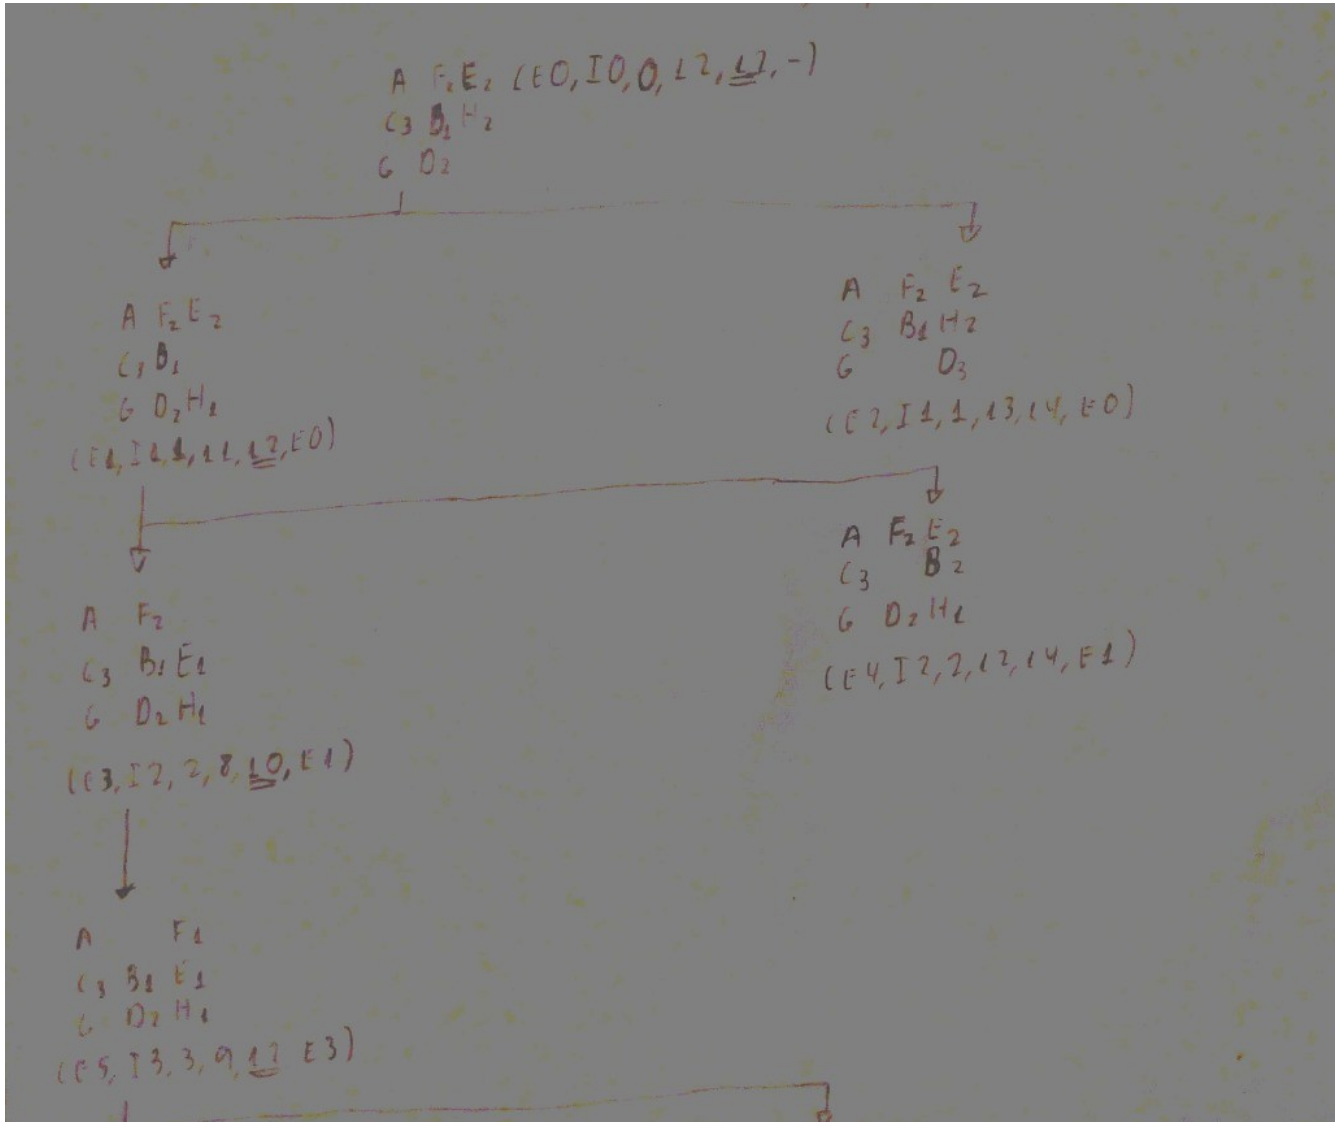 A F₂ E₂ (E0, I0, 0, 12, 12, -)
C₃ B₁ H₂
G D₂
A F₂ E₂
C₃ B₁
G D₂ H₁
(E1, I1, 1, 11, 12, E0)
A F₂ E₂
C₃ B₁ H₂
G D₃
(E2, I1, 1, 13, 14, E0)
A F₂
C₃ B₁ E₁
G D₂ H₁
(E3, I2, 2, 8, 10, E1)
A F₂ E₂
C₃ B₂
G D₂ H₁
(E4, I2, 2, 12, 14, E1)
A F₁
C₃ B₁ E₁
G D₂ H₁
(E5, I3, 3, 9, 12 E3)